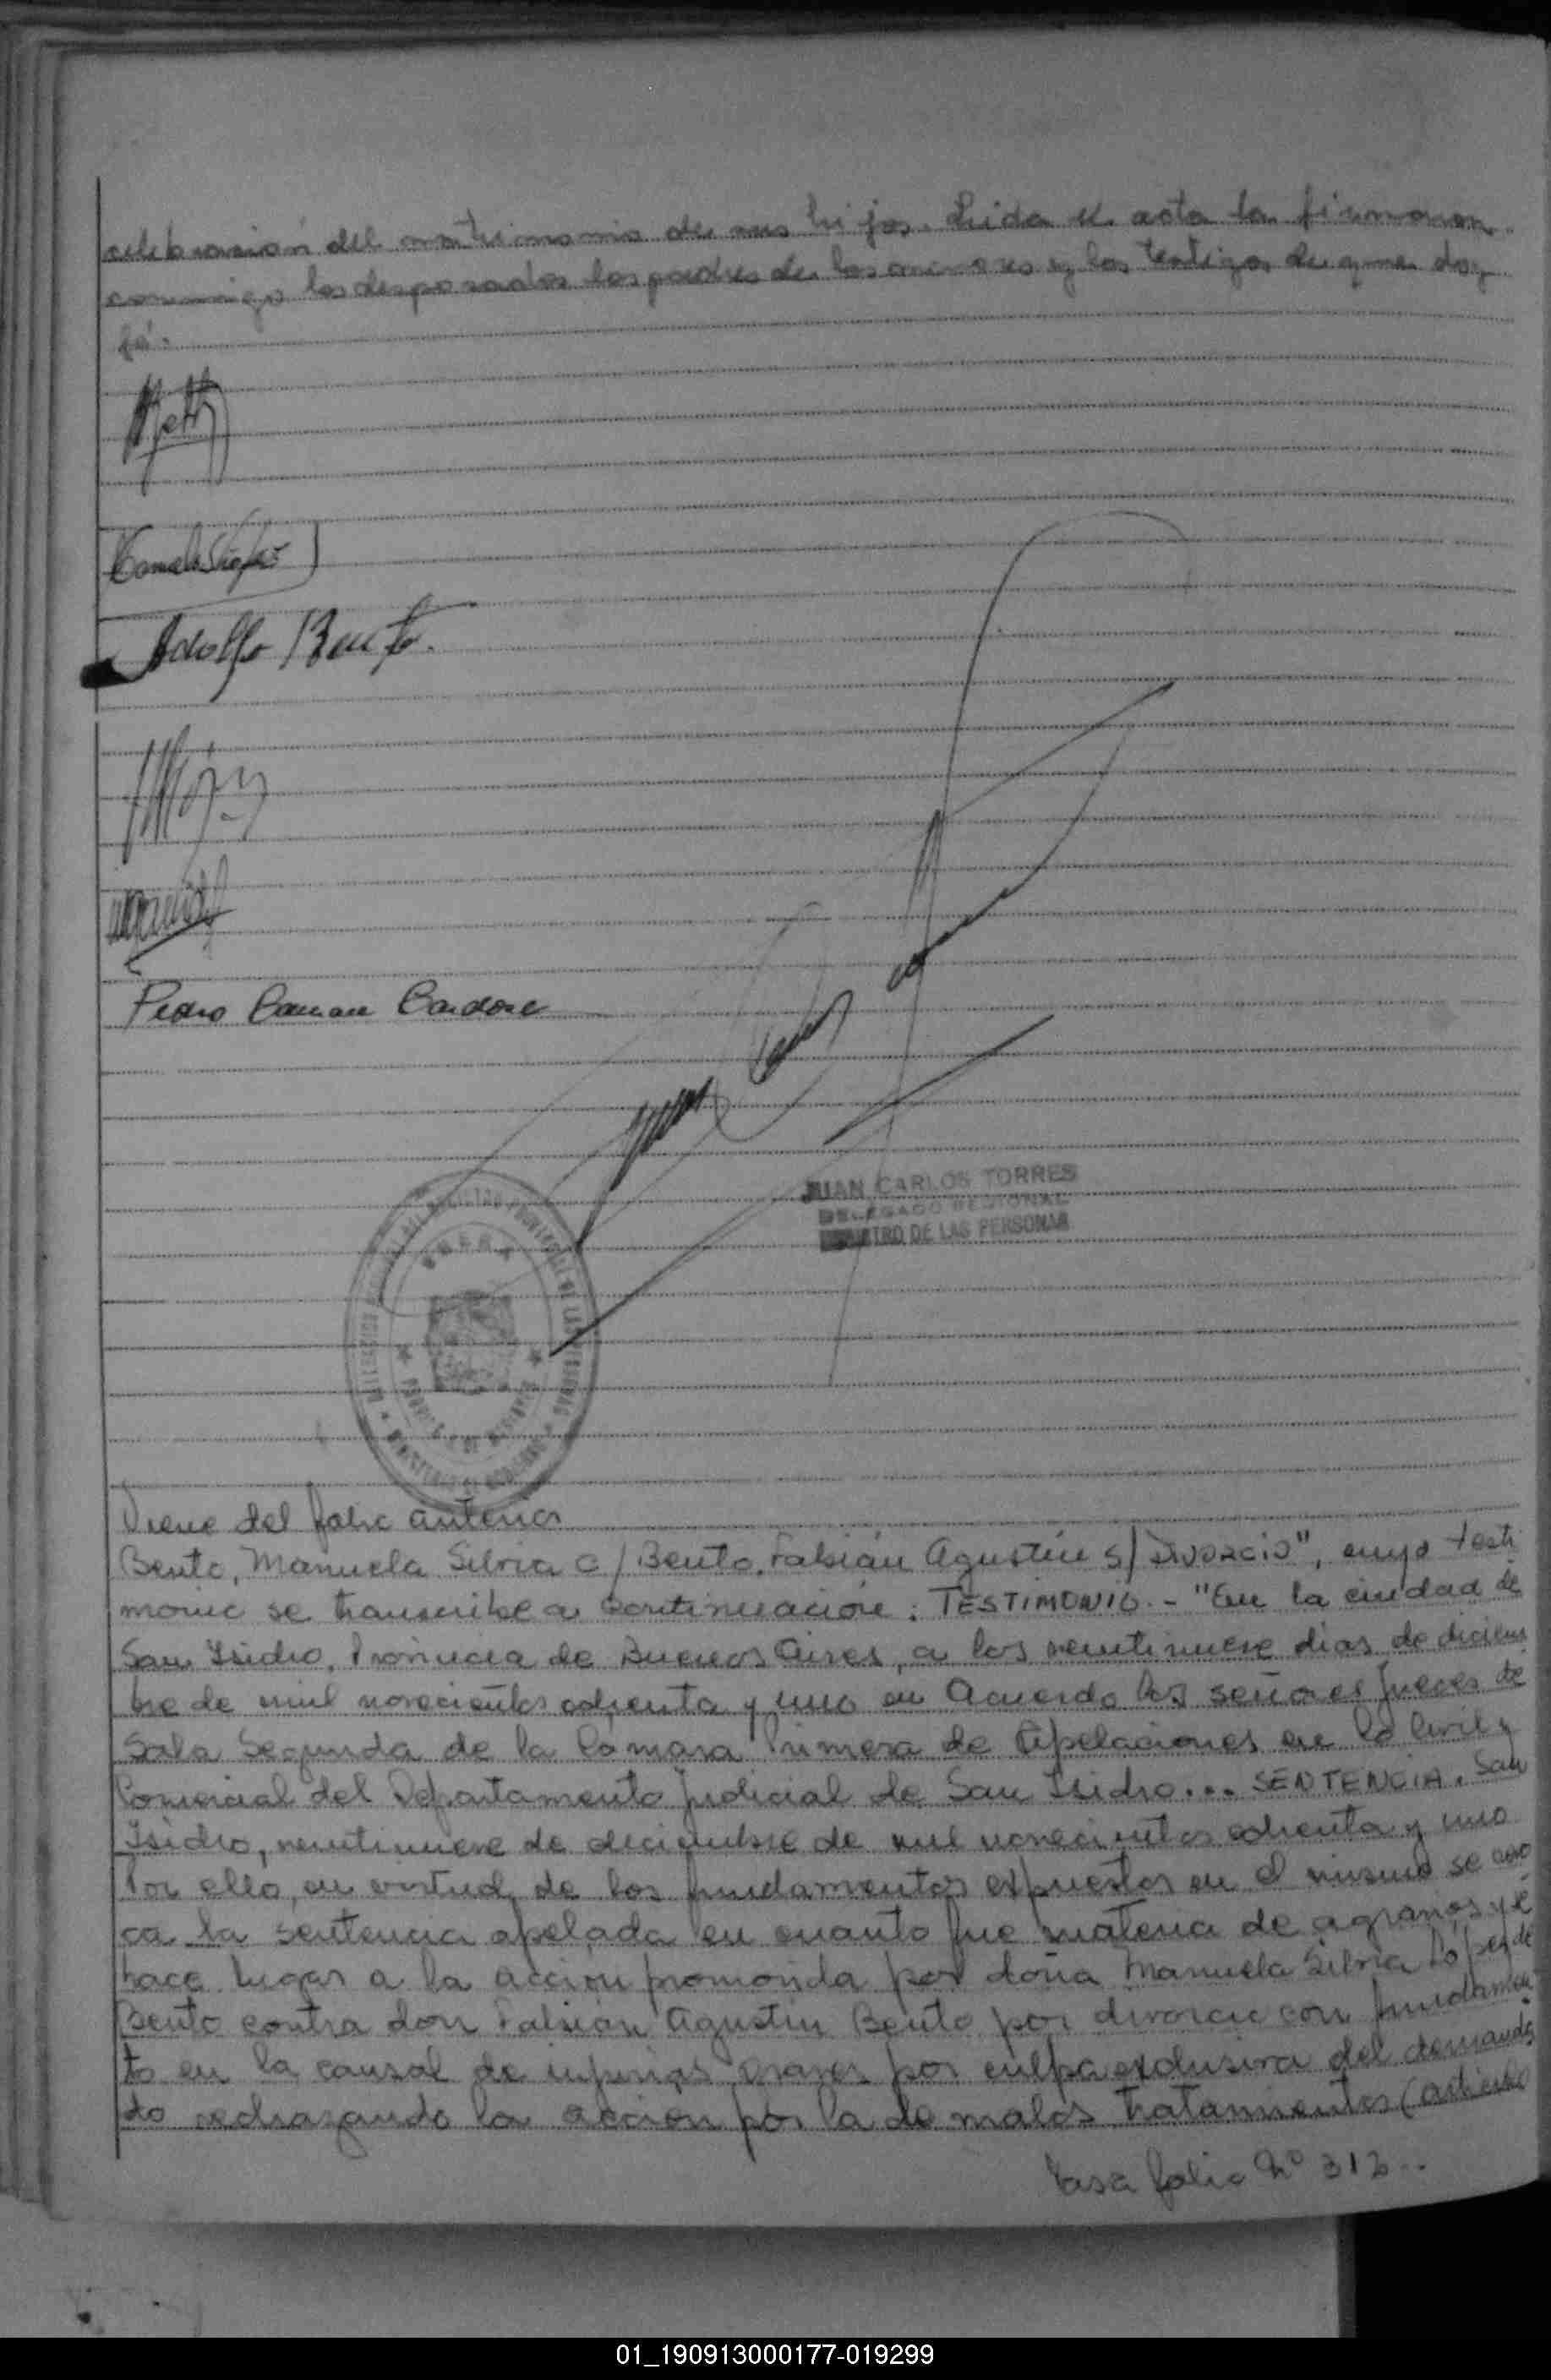 celebración del matrimonio de sus hijos. Leida el acta la firmaron
conmigo los desposados los padres de los menores y los testigos de que doy
fé.
Adolfo Bento.
Pedro Ramon Cardozo
JUAN CARLOS TORRES
DELEGADO REGIONAL
REGISTRO DE LAS PERSONAS
Viene del folio anterior
Bento, Manuela Silvia c/ Bento, Fabián Agustín s/ DIVORCIO", cuyo testi
monio se transcribe a continuación: TESTIMONIO.- "En la ciudad de
San Isidro, Provincia de Buenos Aires, a los veintinueve dias de diciem
bre de mil novecientos ochenta y uno en Acuerdo los señores Jueces de
Sala Segunda de la Cámara Primera de Apelaciones en lo Civil y
Comercial del Departamento Judicial de San Isidro... SENTENCIA. San
Isidro, veintinueve de diciembre de mil novecientos ochenta y uno
Por ello, en virtud, de los fundamentos expuestos en el mismo se revo
ca la sentencia apelada en cuanto fue materia de agravios y se
hace lugar a la acción promovida por doña Manuela Silvia López de
Bento contra don Fabián Agustín Bento por divorcio con fundamen
to en la causal de injurias graves por culpa exclusiva del demanda
do rechazando la acción por la de malos tratamientos (artículo
Pasa folio Nº 313..
01_190913000177-019299